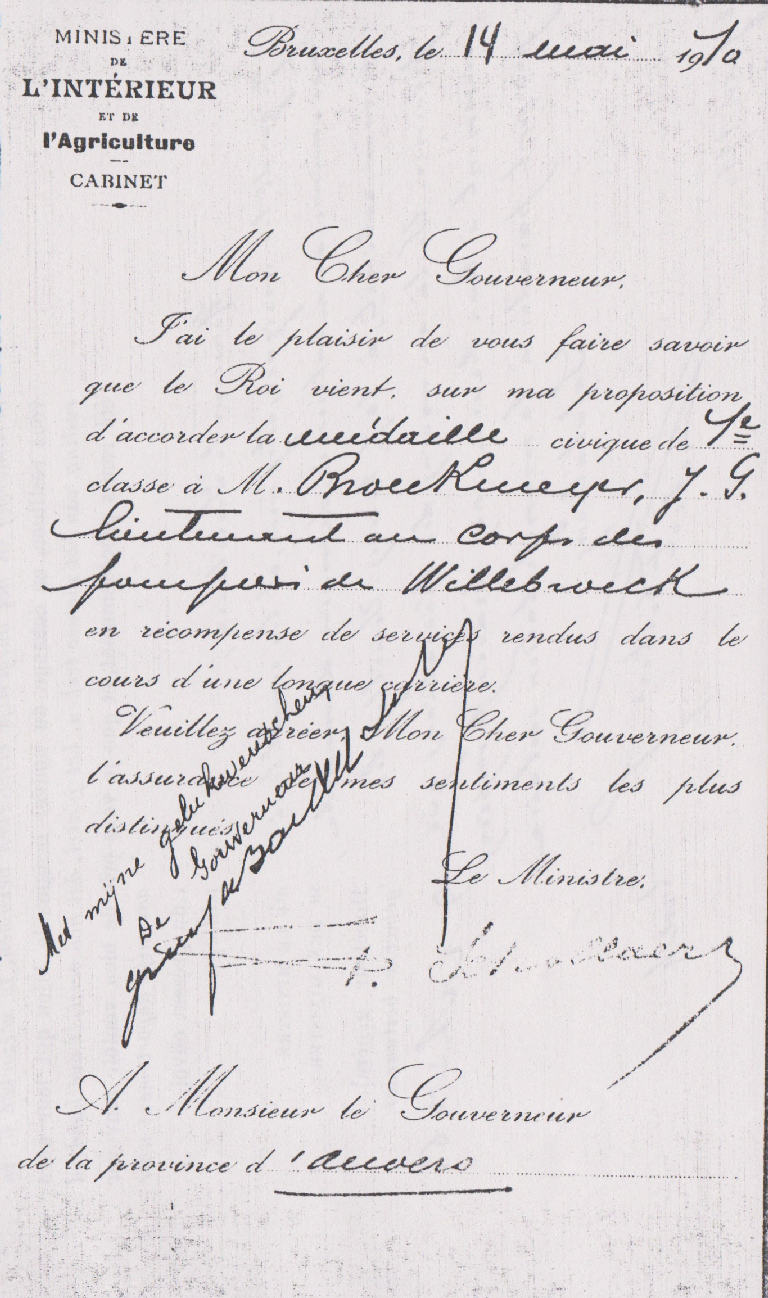 MINISTERE
DE
L'INTÉRIEUR
ET DE
l'Agriculture
CABINET
Bruxelles, le 14 mai 1910
Mon Cher Gouverneur,
J'ai le plaisir de vous faire savoir
que le Roi vient, sur ma proposition
d'accorder la médaille civique de 1re
classe à M. Broeckmeyer, J. G.
lieutenant au corps des
pompiers de Willebroeck
en récompense de services rendus dans le
cours d'une longue carrière.
Veuillez agréer, Mon Cher Gouverneur,
l'assurance de mes sentiments les plus
distingués.
Met mijne gelukwenschen,
De Gouverneur
Le Ministre,
F. Schollaert
A Monsieur le Gouverneur
de la province d'Anvers